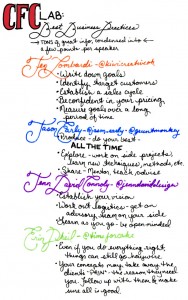 CFC LAB:
Best Business Practices
→ TONS of great info, condensed into a
few points per speaker
Meg Lombardi - @kiwicreativeoh
• Write down goals
• Identify target customers
• Establish a sales cycle
• Be confident in your pricing
• Measure goals over a long
period of time
• Produce - do your best -
ALL THE TIME
• Explore - work on side projects,
learn new techniques, methods, etc.
• Share - Mentor, teach, advise
• Establish your vision
• Work out logistics - get an
advisory team on your side
• Learn as you go - be open minded
• Even if you do everything right,
things can still go haywire
• Your concepts may take away the
client's "PAIN" - the reason they need
you. Follow up with them to make
sure all is good.